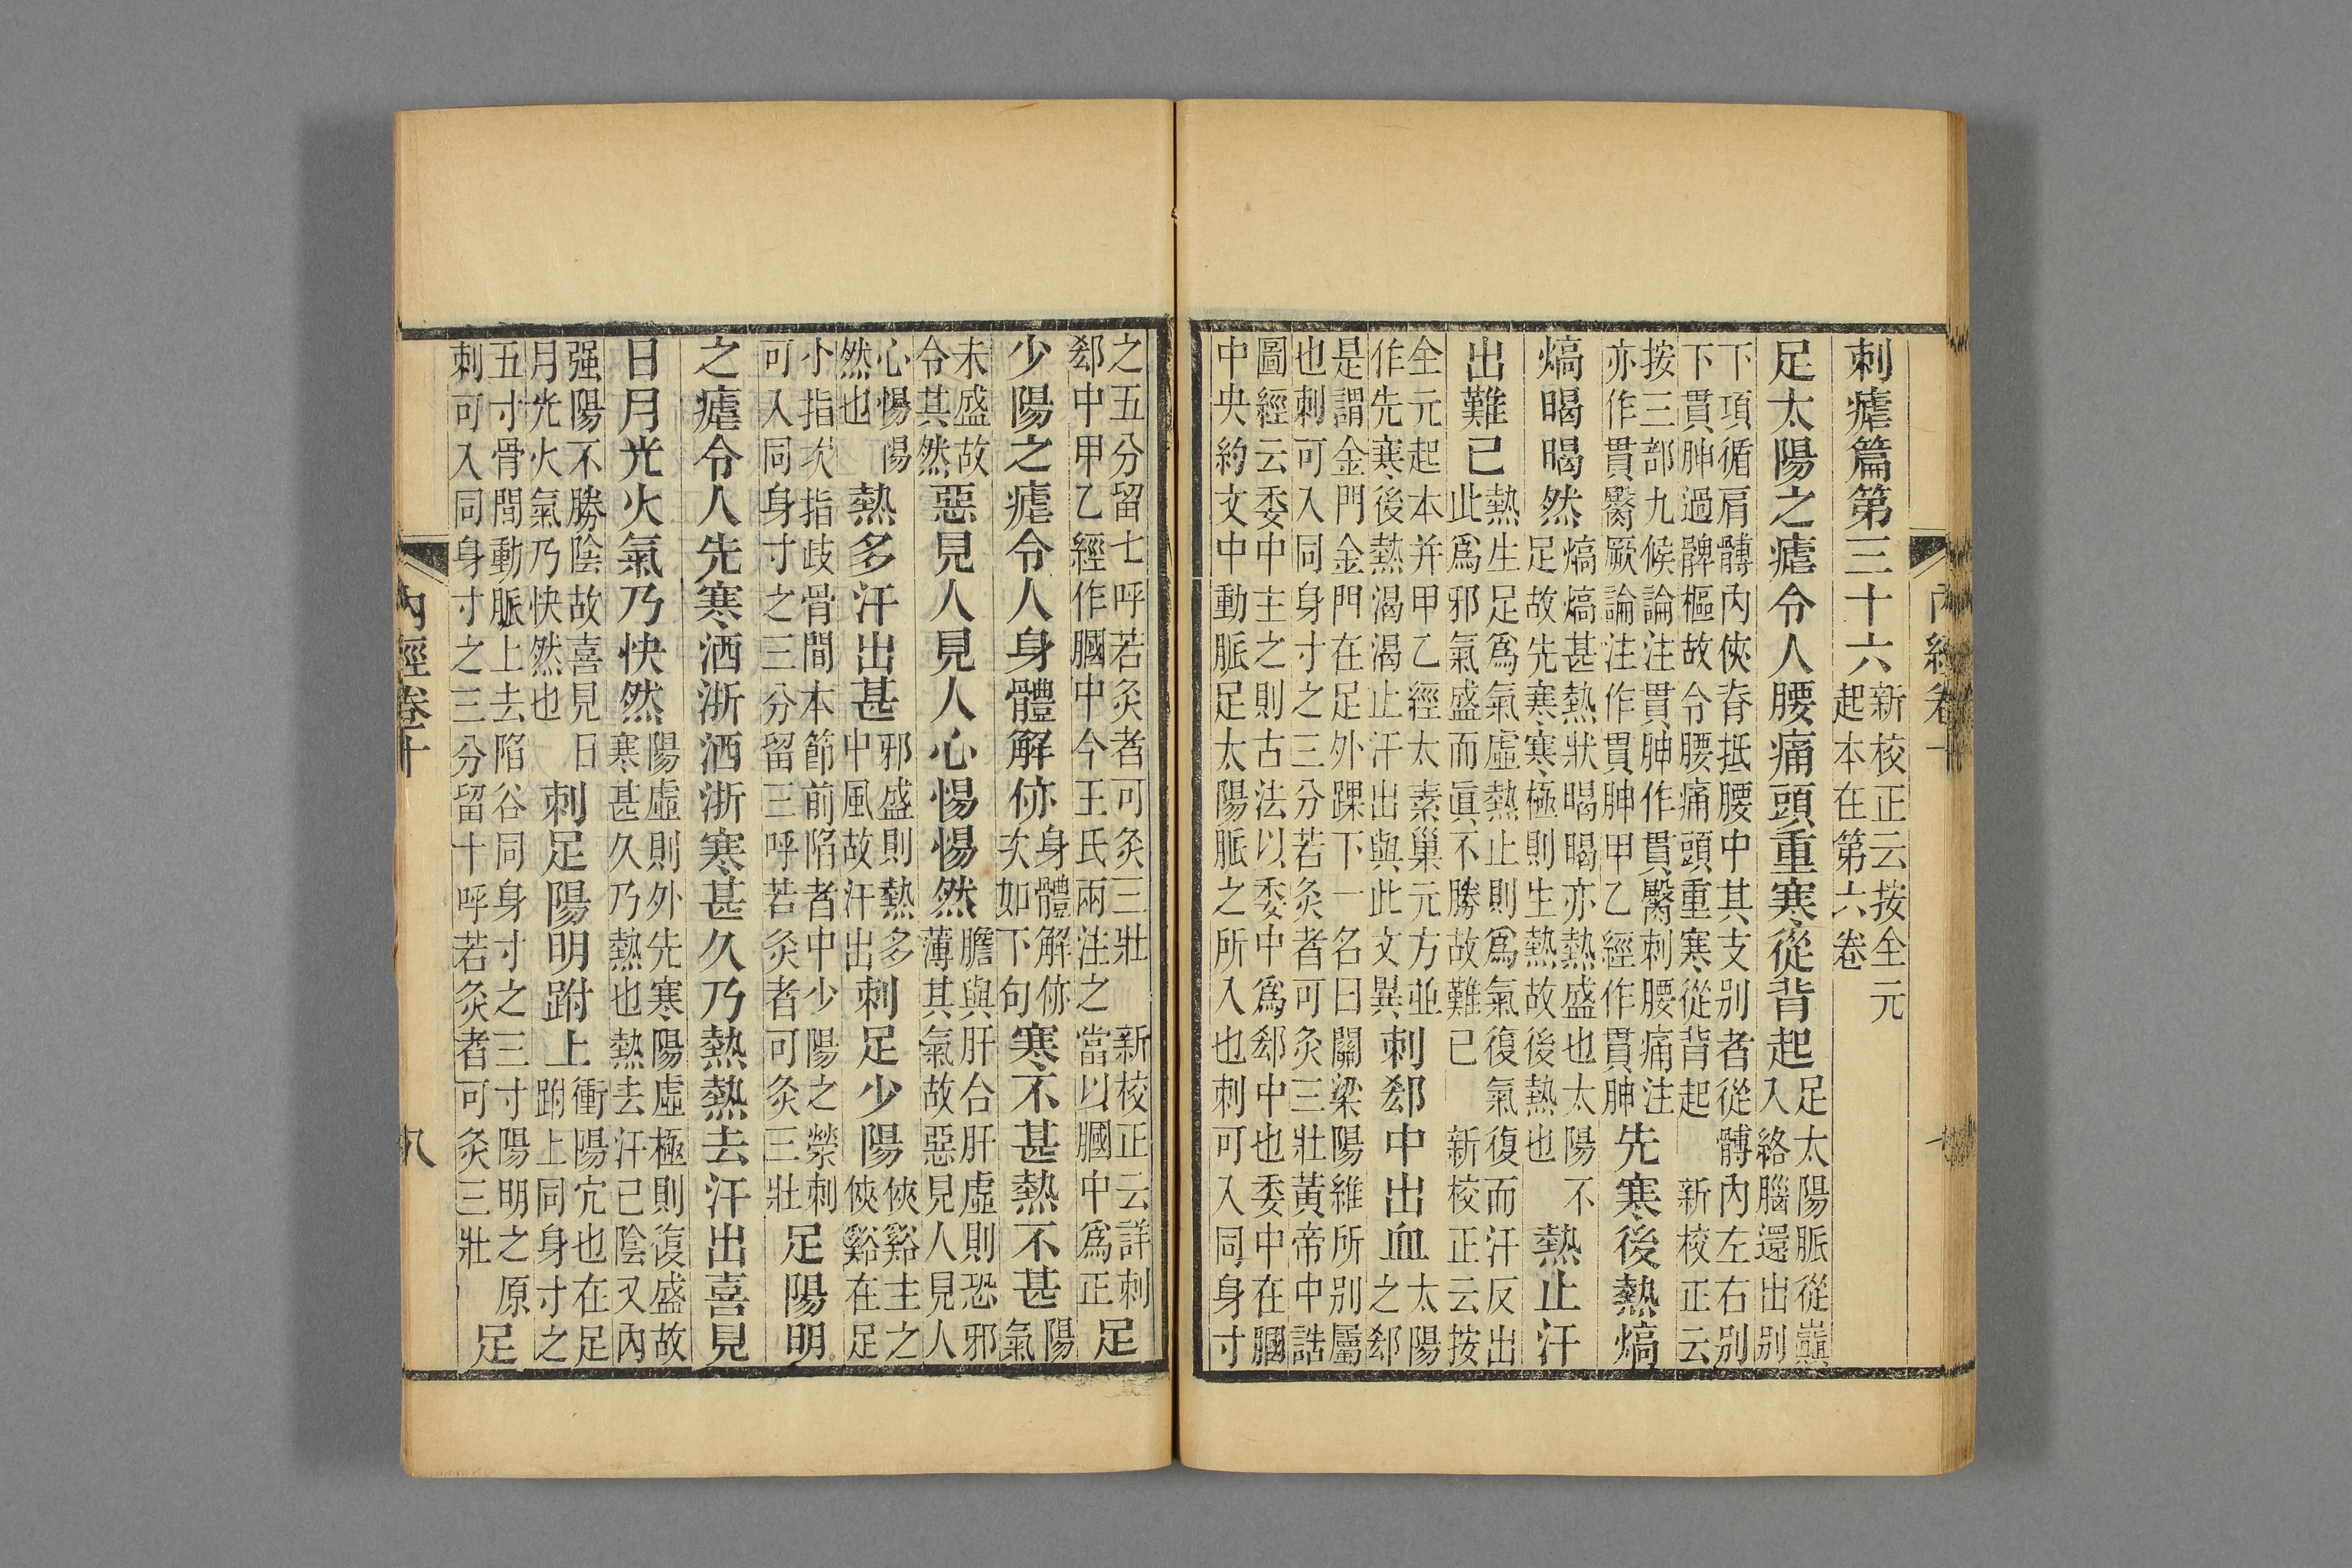 刺瘧篇第三十六新校正云按全元起本在第六卷
足太陽之瘧令人腰痛頭重寒從背起足太陽脈從巔入絡腦還出别
下項循肩髆內俠脊抵腰中其支别者從髆內左右别下貫胂過髀樞故令腰痛頭重寒從背起新校正云
按三部九候論注貫胂作貫臋刺腰痛注亦作貫臋厥論注作貫胂甲乙經作貫胂先寒後熱熇
熇暍暍然熇熇甚熱狀暍暍亦熱盛也太陽不足故先寒寒極則生熱故後熱也熱止汗
出難已熱生足爲氣虛熱止則爲氣復氣復而汗反出此爲邪氣盛而眞不勝故難已新校正云按
全元起本并甲乙經太素巢元方並作先寒後熱渴渴止汗出與此文異刺郄中出血太陽之郄
是謂金門金門在足外踝下一名曰關梁陽維所别屬也刺可入同身寸之三分若灸者可灸三壯黃帝中誥
圖經云委中主之則古法以委中爲郄中也委中在膕中央約文中動脈足太陽脈之所入也刺可入同身寸
之五分留七呼若灸者可灸三壯新校正云詳刺郄中甲乙經作膕中今王氏兩注之當以膕中爲正足
少陽之瘧令人身體解㑊身體解㑊次如下句寒不甚熱不甚陽氣
未盛故令其然惡見人見人心惕惕然膽與肝合肝虛則恐邪薄其氣故惡見人見人
心惕陽然也熱多汗出甚邪盛則熱多中風故汗出刺足少陽俠谿主之俠谿在足
小指次指歧骨間本節前陷者中少陽之滎刺可入同身寸之三分留三呼若灸者可灸三壯足陽明
之瘧令人先寒洒淅洒淅寒甚久乃熱熱去汗出喜見
日月光火氣乃快然陽虛則外先寒陽虛極則復盛故寒甚久乃熱也熱去汗已陰又內
强陽不勝陰故喜見日月光火氣乃快然也刺足陽明跗上衝陽穴也在足跗上同身寸之
五寸骨間動脈上去陷谷同身寸之三寸陽明之原刺可入同身寸之三分留十呼若灸者可灸三壯足
內經卷十
八